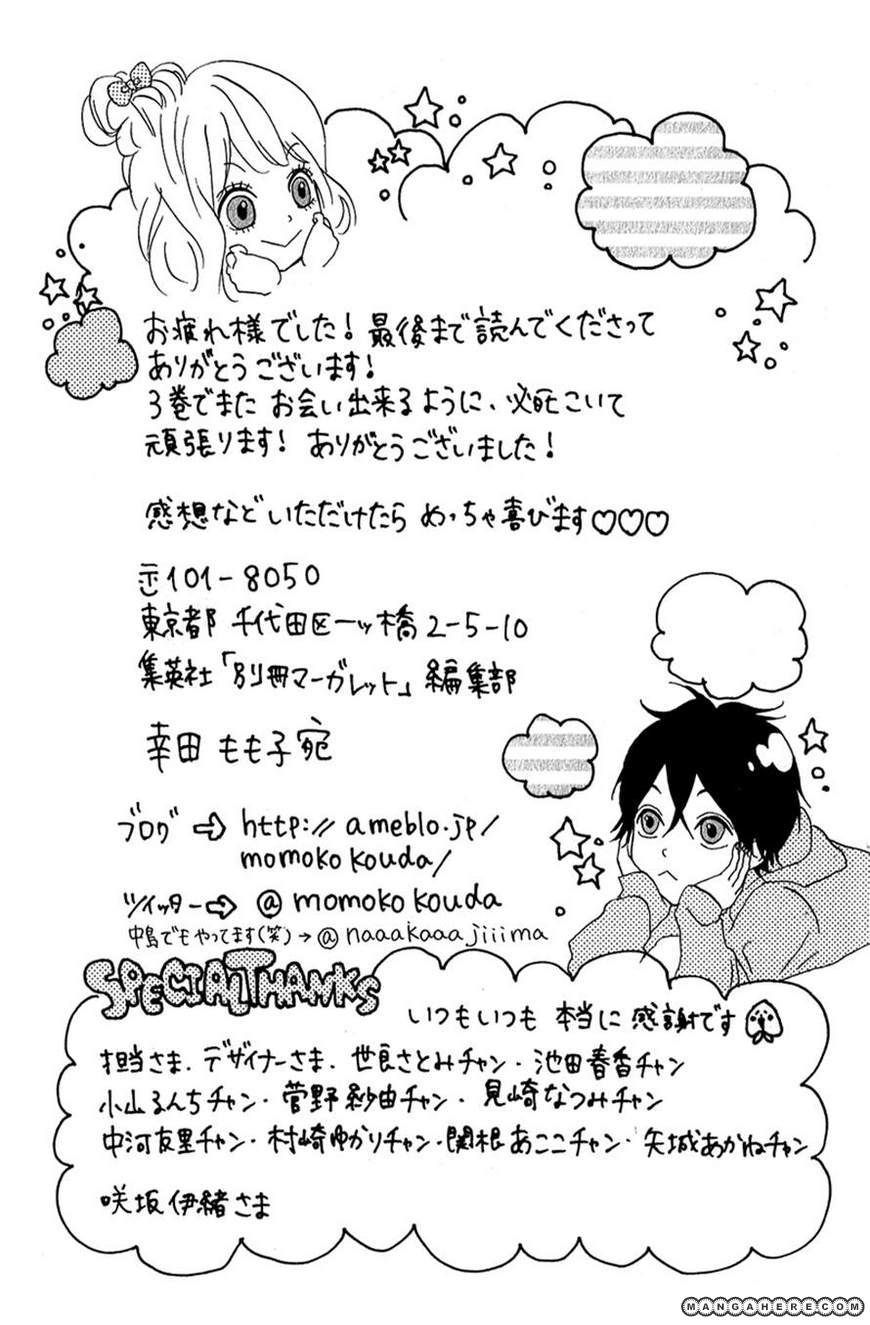 お疲れ様でした! 最後まで読んでくださって
ありがとうございます!
3巻でまた お会い出来るように、必死こいて
頑張ります! ありがとうございました!
感想などいただけたら めっちゃ喜びます♡♡♡
〒101-8050
東京都 千代田区一ッ橋2-5-10
集英社「別冊マーガレット」編集部
幸田 もも子 宛
ブログ⇨ http://ameblo.jp/
momokokouda/
ツイッター⇨ @momokokouda
中島でもやってます(笑)→@naaakaaajiiima
SPECIAL THANKS
いつもいつも 本当に 感謝です
担当さま・デザイナーさま・世良さとみチャン・池田春香チャン
小山るんちチャン・菅野紗由チャン・見崎なつみチャン
中河友里チャン・村崎ゆかりチャン・関根あここチャン・矢城あかねチャン
咲坂伊緒さま
MANGAHERE.COM